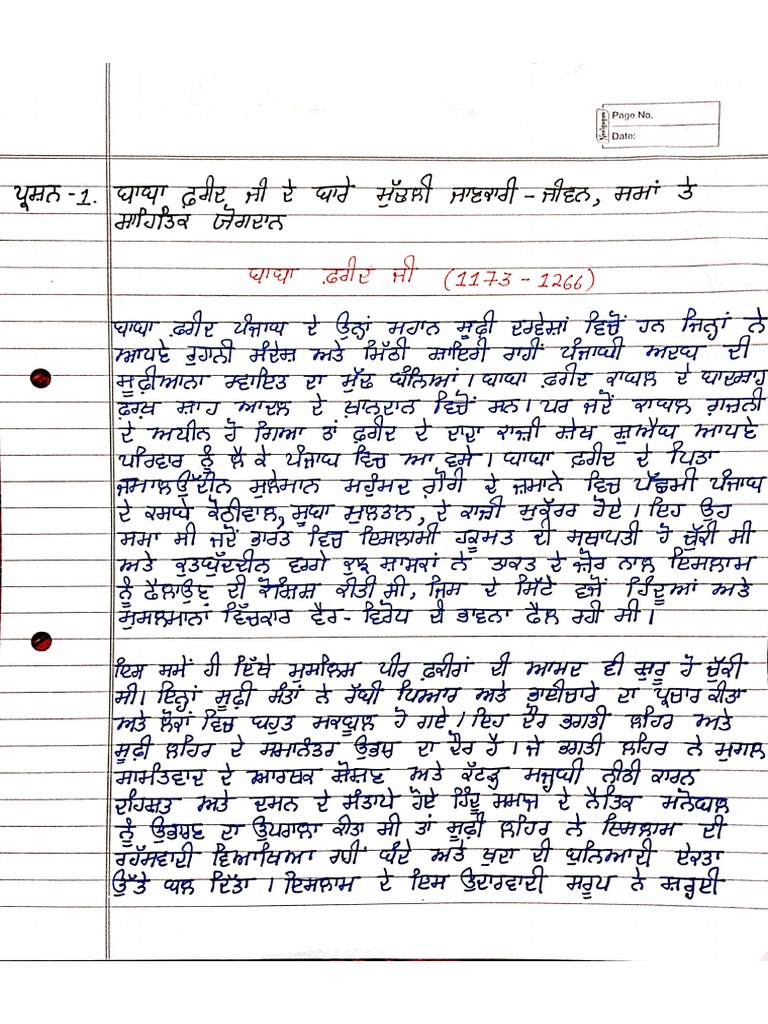 Page No.
Date:
ਪ੍ਰਸ਼ਨ -1. ਬਾਬਾ ਫ਼ਰੀਦ ਜੀ ਦੇ ਬਾਰੇ ਮੁੱਢਲੀ ਜਾਣਕਾਰੀ - ਜੀਵਨ, ਸਮਾਂ ਤੇ
ਸਾਹਿਤਿਕ ਯੋਗਦਾਨ
ਬਾਬਾ ਫ਼ਰੀਦ ਜੀ (1173 - 1266)
ਬਾਬਾ ਫ਼ਰੀਦ ਪੰਜਾਬ ਦੇ ਉਨ੍ਹਾਂ ਮਹਾਨ ਸੂਫ਼ੀ ਦਰਵੇਸ਼ਾਂ ਵਿਚੋਂ ਹਨ ਜਿਨ੍ਹਾਂ ਨੇ
ਆਪਣੇ ਰੁਹਾਨੀ ਸੰਦੇਸ਼ ਅਤੇ ਮਿੱਠੀ ਸ਼ਾਇਰੀ ਰਾਹੀਂ ਪੰਜਾਬੀ ਅਦਬ ਦੀ
ਸੂਫ਼ੀਆਨਾ ਰਵਾਇਤ ਦਾ ਮੁੱਢ ਬੰਨਿਆਂ। ਬਾਬਾ ਫ਼ਰੀਦ ਕਾਬਲ ਦੇ ਬਾਦਸ਼ਾਹ
ਫ਼ਰੁਖ਼ ਸ਼ਾਹ ਆਦਲ ਦੇ ਖ਼ਾਨਦਾਨ ਵਿਚੋਂ ਸਨ। ਪਰ ਜਦੋਂ ਕਾਬਲ ਗ਼ਜ਼ਨੀ
ਦੇ ਅਧੀਨ ਹੋ ਗਿਆ ਤਾਂ ਫ਼ਰੀਦ ਦੇ ਦਾਦਾ ਕਾਜ਼ੀ ਸ਼ੇਖ ਸ਼ੁਐਬ ਆਪਣੇ
ਪਰਿਵਾਰ ਨੂੰ ਲੈ ਕੇ ਪੰਜਾਬ ਵਿਚ ਆ ਵਸੇ। ਬਾਬਾ ਫ਼ਰੀਦ ਦੇ ਪਿਤਾ
ਜਮਾਲਉੱਦੀਨ ਸੁਲੇਮਾਨ ਮਹੁੰਮਦ ਗ਼ੌਰੀ ਦੇ ਜ਼ਮਾਨੇ ਵਿਚ ਪੱਛਮੀ ਪੰਜਾਬ
ਦੇ ਕਸਬੇ ਕੋਠੀਵਾਲ, ਸੂਬਾ ਮੁਲਤਾਨ, ਦੇ ਕਾਜ਼ੀ ਮੁਕੱਰਰ ਹੋਏ। ਇਹ ਉਹ
ਸਮਾ ਸੀ ਜਦੋਂ ਭਾਰਤ ਵਿਚ ਇਸਲਾਮੀ ਹਕੂਮਤ ਦੀ ਸਥਾਪਤੀ ਹੋ ਚੁੱਕੀ ਸੀ
ਅਤੇ ਕੁਤਬੁੱਦਦੀਨ ਵਰਗੇ ਕੁਝ ਸ਼ਾਸਕਾਂ ਨੇ ਤਾਕਤ ਦੇ ਜ਼ੋਰ ਨਾਲ ਇਸਲਾਮ
ਨੂੰ ਫੈਲਾਉਣ ਦੀ ਕੋਸ਼ਿਸ਼ ਕੀਤੀ ਸੀ, ਜਿਸ ਦੇ ਸਿੱਟੇ ਵਜੋਂ ਹਿੰਦੂਆਂ ਅਤੇ
ਮੁਸਲਮਾਨਾਂ ਵਿੱਚਕਾਰ ਵੈਰ-ਵਿਰੋਧ ਦੀ ਭਾਵਨਾ ਫੈਲ ਰਹੀ ਸੀ।
ਇਸ ਸਮੇਂ ਹੀ ਇੱਥੇ ਮੁਸਲਿਮ ਪੀਰ ਫ਼ਕੀਰਾਂ ਦੀ ਆਮਦ ਵੀ ਸ਼ੁਰੂ ਹੋ ਚੁੱਕੀ
ਸੀ। ਇਨ੍ਹਾਂ ਸੂਫ਼ੀ ਸੰਤਾਂ ਨੇ ਰੱਬੀ ਪਿਆਰ ਅਤੇ ਭਾਈਚਾਰੇ ਦਾ ਪ੍ਰਚਾਰ ਕੀਤਾ
ਅਤੇ ਲੋਕਾਂ ਵਿਚ ਬਹੁਤ ਮਕਬੂਲ ਹੋ ਗਏ। ਇਹ ਦੌਰ ਭਗਤੀ ਲਹਿਰ ਅਤੇ
ਸੂਫ਼ੀ ਲਹਿਰ ਦੇ ਸਮਾਨੰਤਰ ਉਭਰਣ ਦਾ ਦੌਰ ਹੈ। ਜੇ ਭਗਤੀ ਲਹਿਰ ਨੇ ਮੁਗਲ
ਸਾਮੰਤਵਾਦ ਦੇ ਆਰਥਕ ਸ਼ੋਸ਼ਣ ਅਤੇ ਕੱਟੜ ਮਜ਼੍ਹਬੀ ਨੀਤੀ ਕਾਰਨ
ਦਹਿਸ਼ਤ ਅਤੇ ਦਮਨ ਦੇ ਸੰਤਾਪੇ ਹੋਏ ਹਿੰਦੂ ਸਮਾਜ ਦੇ ਨੈਤਿਕ ਮਨੋਬਲ
ਨੂੰ ਉਭਾਰਣ ਦਾ ਉਪਰਾਲਾ ਕੀਤਾ ਸੀ ਤਾਂ ਸੂਫ਼ੀ ਲਹਿਰ ਨੇ ਇਸਲਾਮ ਦੀ
ਰਹੱਸਵਾਦੀ ਵਿਆਖਿਆ ਰਾਹੀਂ ਬੰਦੇ ਅਤੇ ਖ਼ੁਦਾ ਦੀ ਬੁਨਿਆਦੀ ਏਕਤਾ
ਉੱਤੇ ਬਲ ਦਿੱਤਾ। ਇਸਲਾਮ ਦੇ ਇਸ ਉਦਾਰਵਾਦੀ ਸਰੂਪ ਨੇ